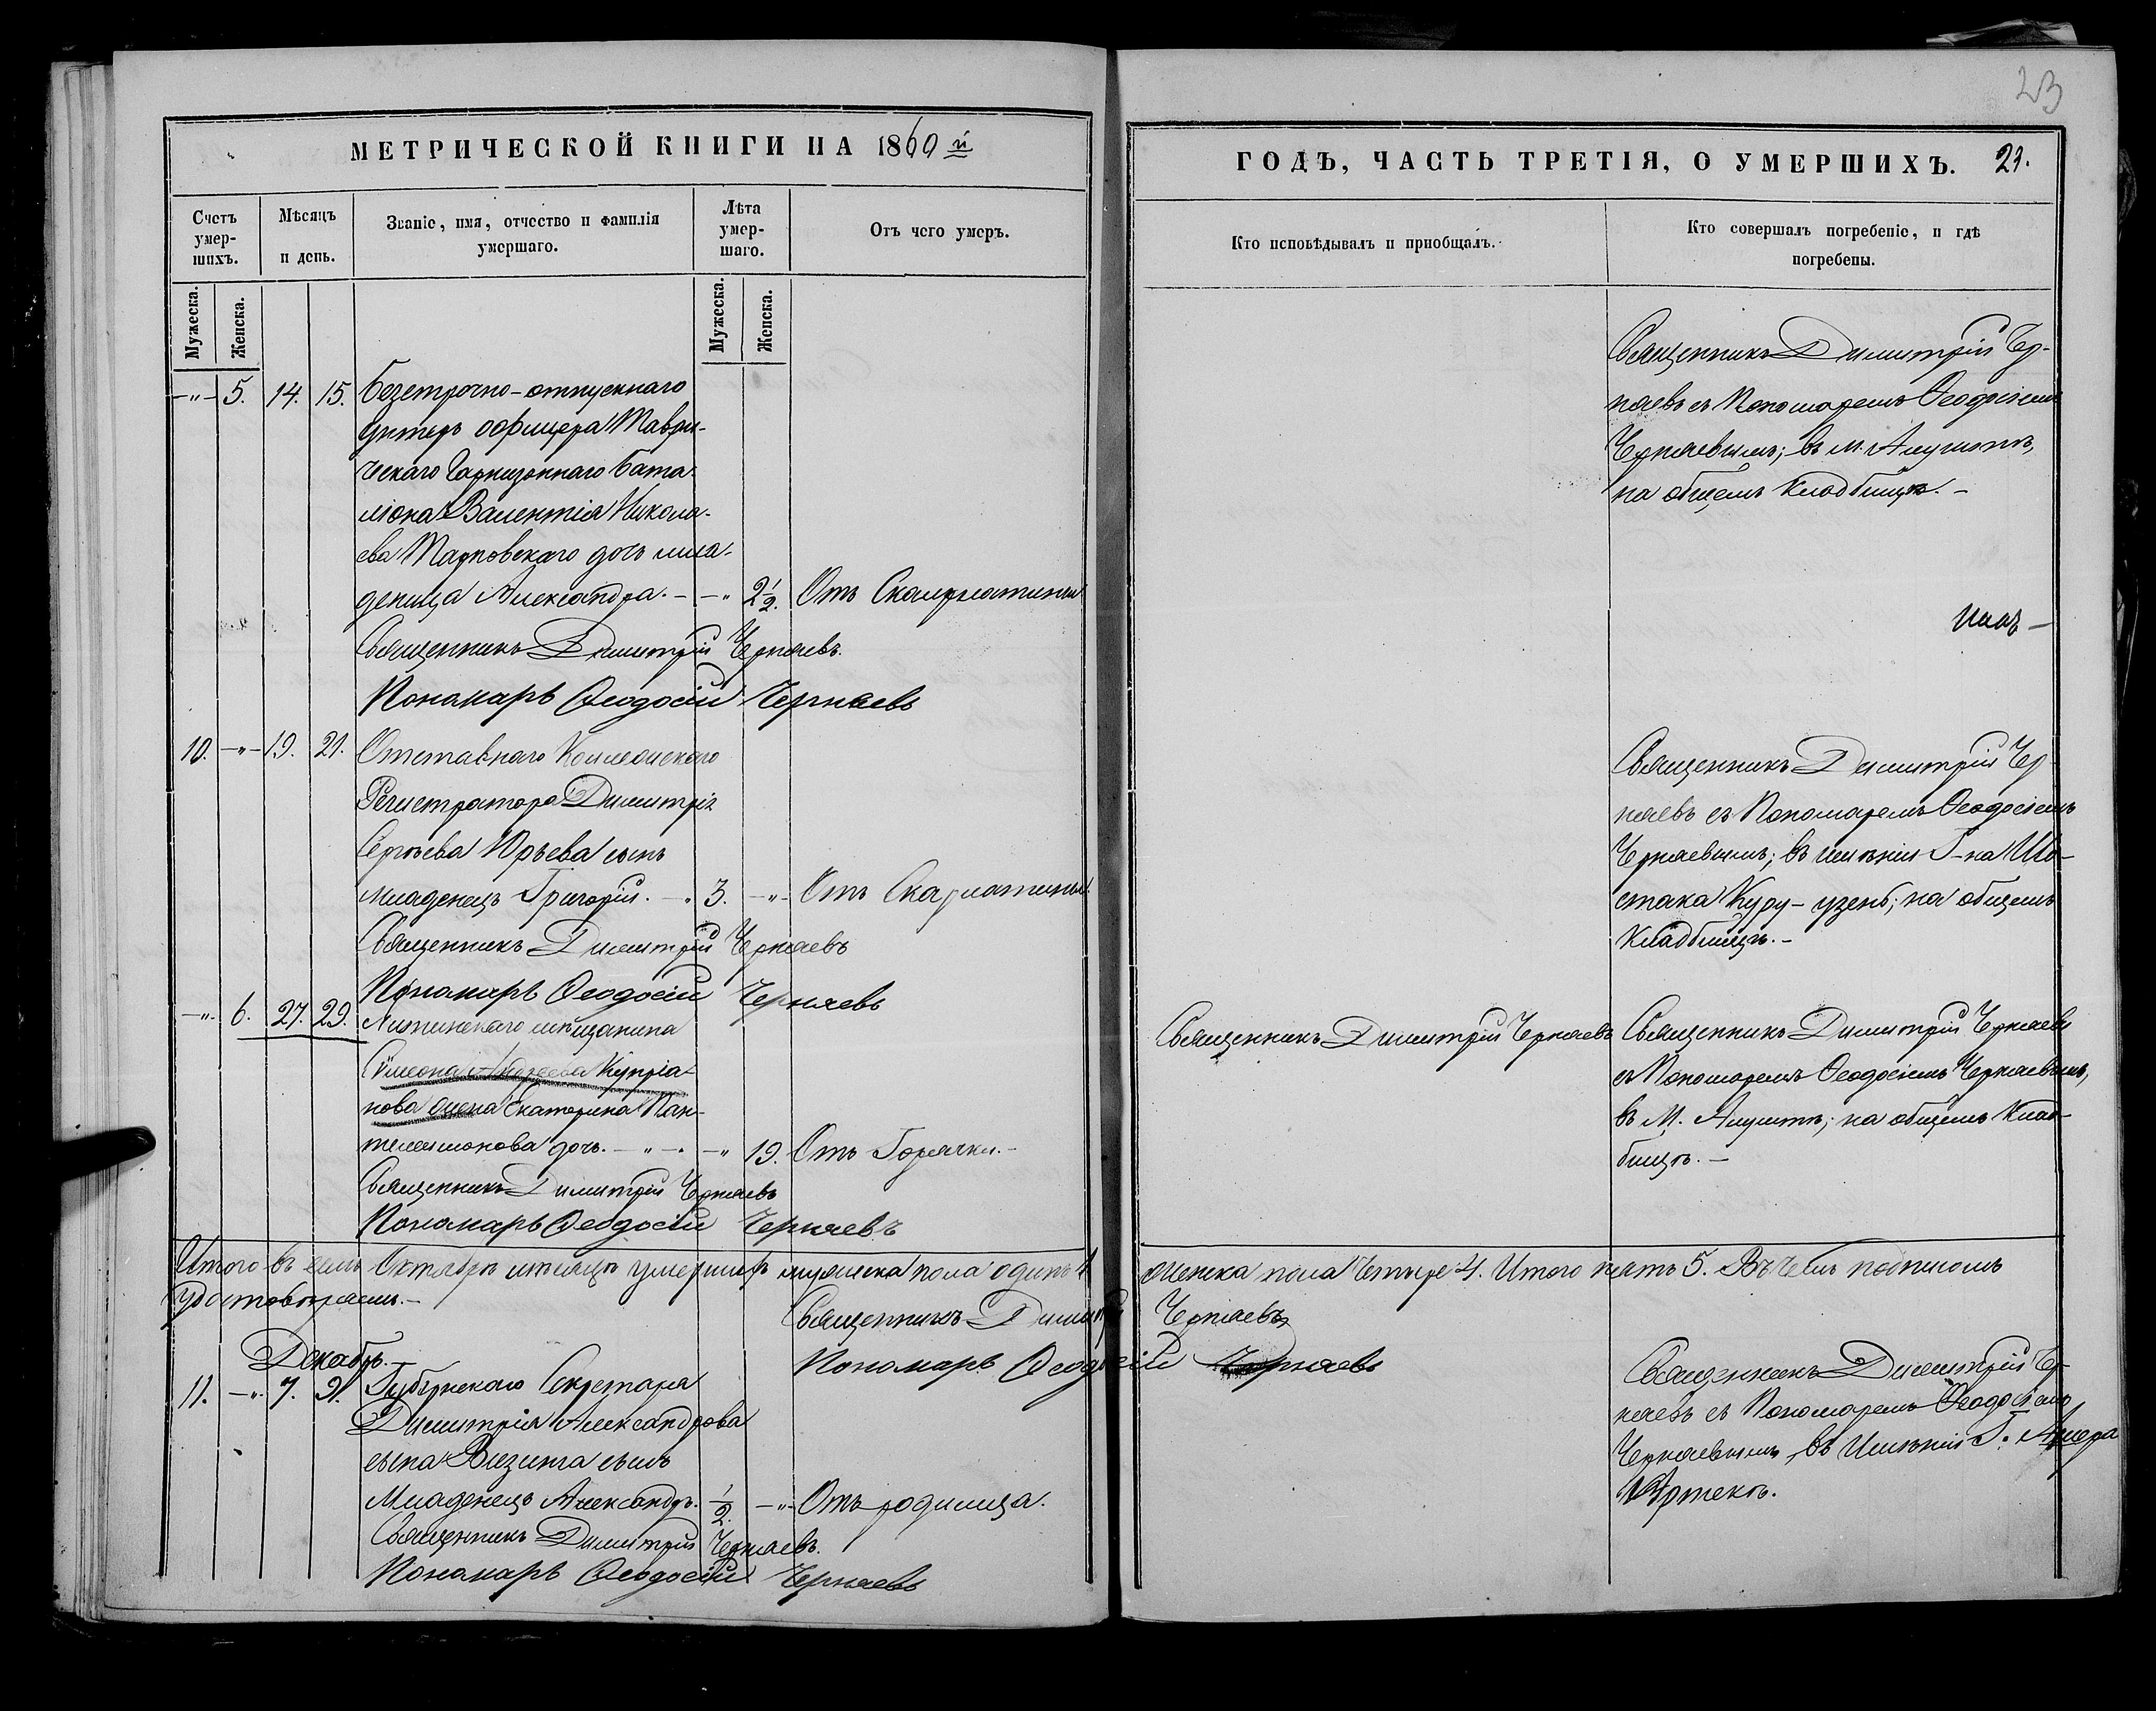 23
МЕТРИЧЕСКОЙ КНИГИ НА 1860 й
ГОДЪ, ЧАСТЬ ТРЕТІЯ, О УМЕРШИХЪ.
Счетъ умер-шихъ.
Мѣсяцъ и день.
Званіе, имя, отчество и фамилія умершаго.
Лѣта умер-шаго.
Отъ чего умеръ.
Кто исповѣдывалъ и пріобщалъ.
Кто совершалъ погребеніе, и гдѣ погребены.
Мужеска.
Женска.
Мужеска.
Женска.
-"- 5. 14. 15. Безсрочно-отпускнаго
унтеръ офицера Таври-
ческаго Гарнизоннаго бата-
ліона Валентія Никола-
ева Тарновскаго дочь мла-
деница Александра. - -" 2 1/2. Отъ Скарлатины
Священникъ Димитрій Черняевъ.
Пономарь Ѳеодосій Черняевъ
Священникъ Димитрій Чер-
няевъ съ Пономаремъ Ѳеодосіемъ
Черняевымъ; въ м. Алуштѣ,
на общемъ кладбищѣ. -
10. -"- 19. 21. Отставнаго Коллежскаго
Регистратора Димитрія
Сергѣева Юрьева сынъ
младенецъ Григорій. - " 3. -"- Отъ Скарлатины
Священникъ Димитрій Черняевъ
Пономарь Ѳеодосій Черняевъ
Священникъ Димитрій Чер-
няевъ съ Пономаремъ Ѳеодосіемъ
Черняевымъ; въ имѣніи Г-на Ше-
стака Куру-узень; на общемъ
Кладбищѣ. -
-"- 6. 27. 29. мѣщанина
Сѵмеона Андреева Купріа-
нова жена Екатерина Пан-
телеимонова дочь. - " - . -" 19. Отъ Горячки. -
Священникъ Димитрій Черняевъ
Пономарь Ѳеодосій Черняевъ
Священникъ Димитрій Черняевъ
Священникъ Димитрій Черняевъ
съ Пономаремъ Ѳеодосіемъ Черняевымъ,
въ М. Алуштѣ; на общемъ Клад-
бищѣ. -
Итого въ семъ Октябрѣ мѣсяцѣ умершихъ мужеска пола одинъ 1
женска пола четыре 4. Итого пять 5. Въ чемъ подписомъ
удостовѣряемъ. -
Священникъ Димитрій Черняевъ
Пономарь Ѳеодосій Черняевъ
Декабрь.
11. -". 7. 9. Губернскаго Секретаря
Димитрія Александрова
сына Визинга сынъ
Младенецъ Александръ. 1/2. -"- Отъ родимца.
Священникъ Димитрій Черняевъ.
Пономарь Ѳеодосій Черняевъ
Священникъ Димитрій Чер-
няевъ съ Пономаремъ Ѳеодосіемъ
Черняевымъ, въ Имѣніи Г.
Артекѣ.